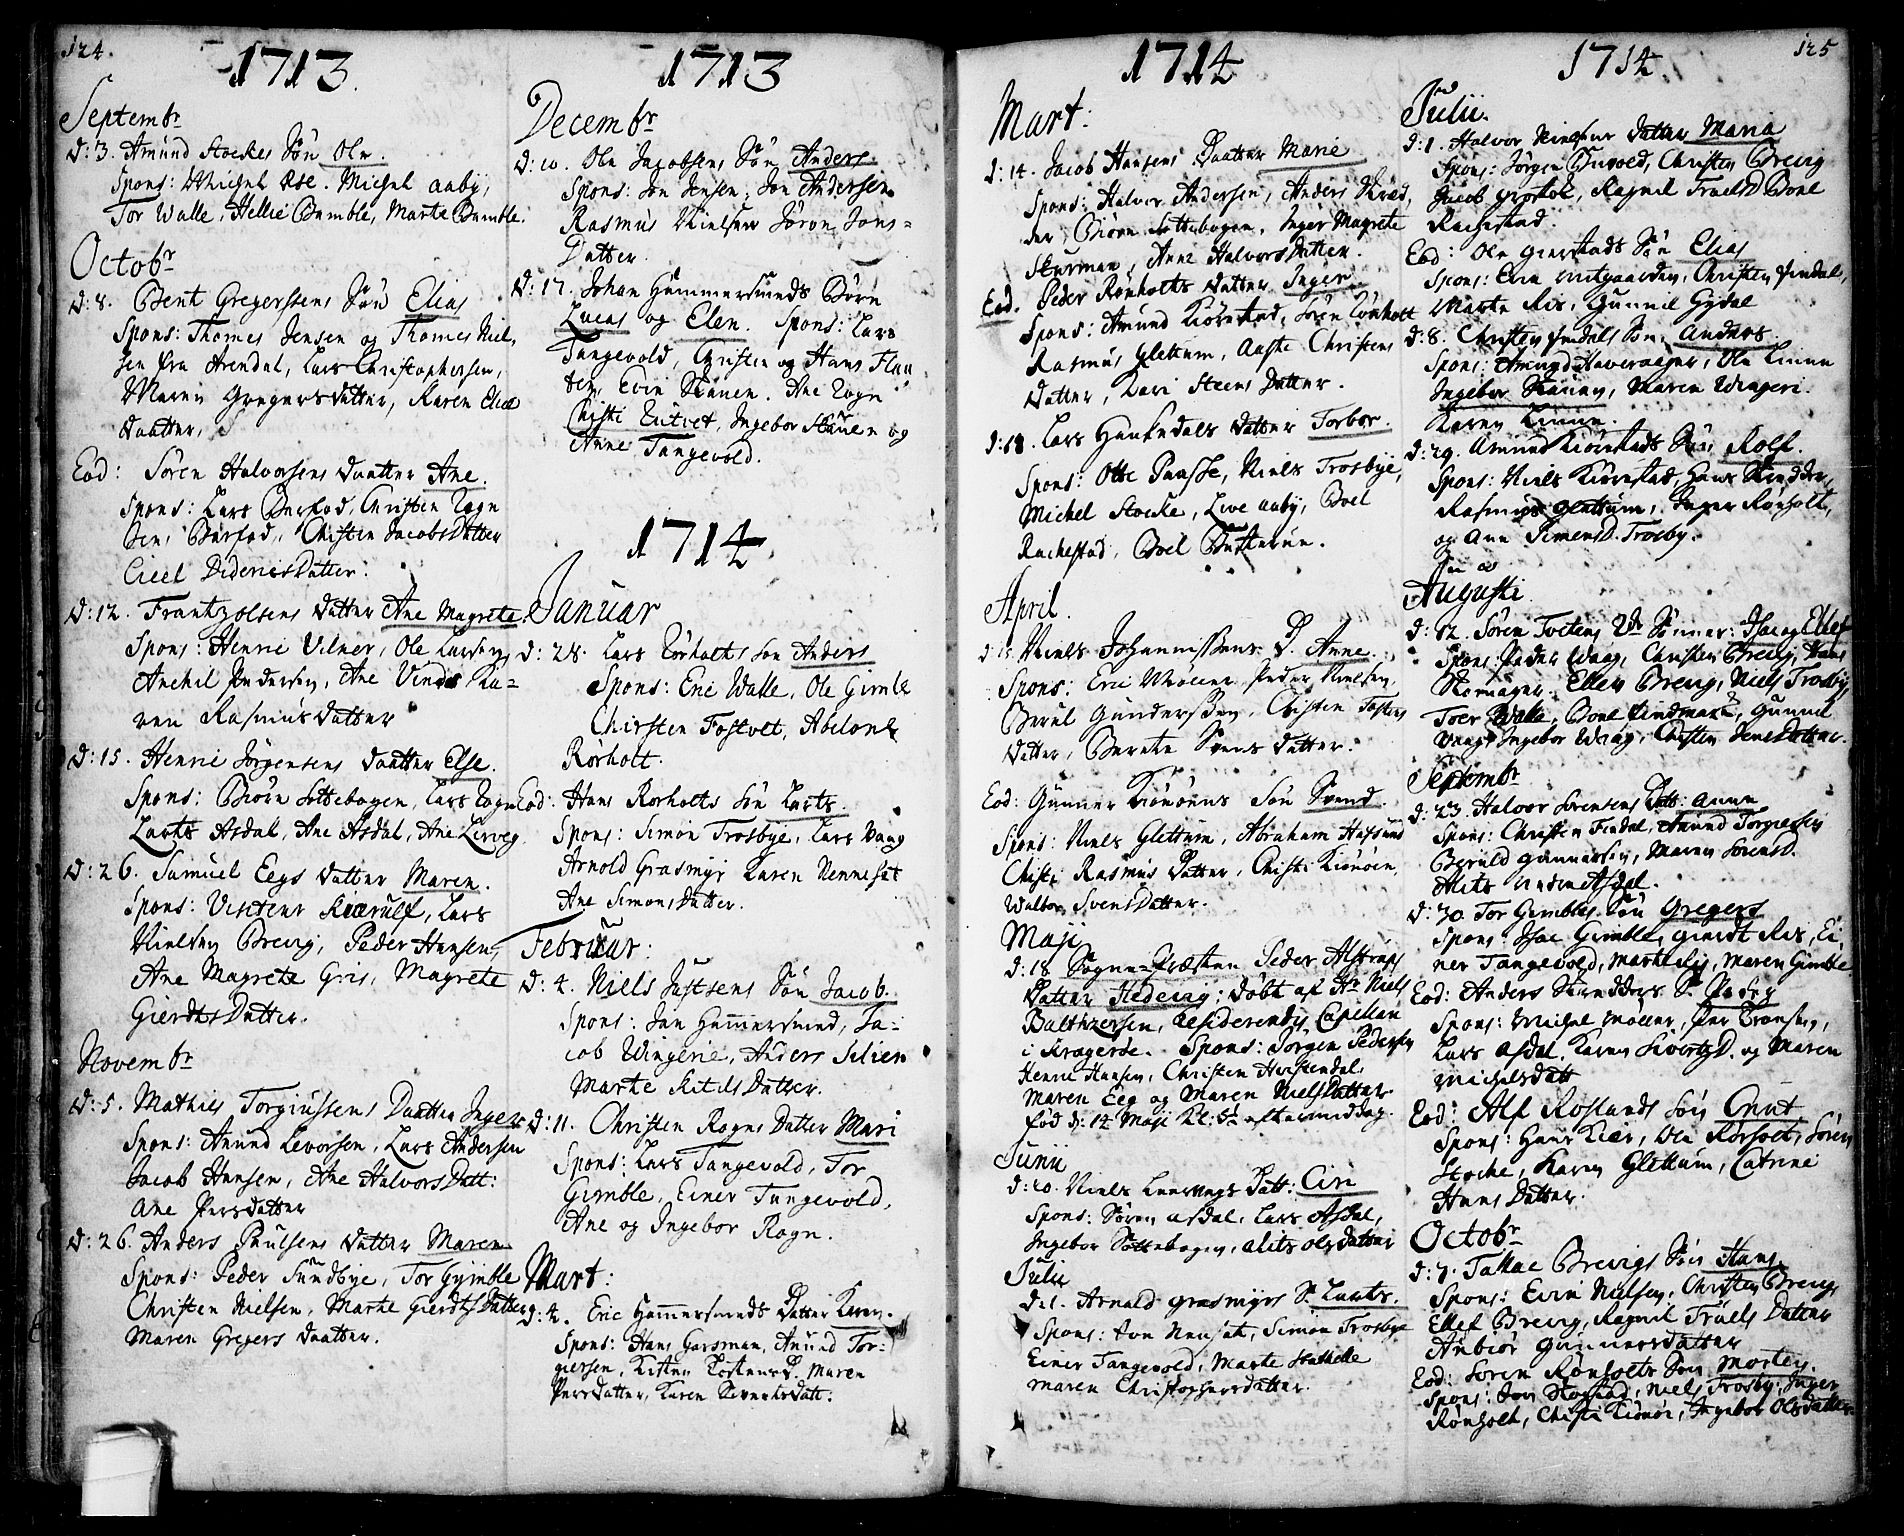 124.
1713.
Septembr
D: 3. Amund Stockes Søn Ole.
Spons: Michel Ose. Michel aaby,
Tor Walle, Hellie Bamble, Marte Bamble.
Octobr
D: 8. Bent Gregerssens Søn Elias
Spons: Thomes Jensen og Thomes Niel,
sen fra Arendal, Lars Christophersen,
Maren Gregersdatter, Karen Elia
daatter,
Eod: Sören Halvorsens daatter Ane.
Spons: Lars Christen Rogn
Christen Jacobsdatter
Cicel Diderics Datter.
D: 12. Frantz olsens datter Ane Magrete.
Spons: Henric Vilner, Ole Larsen,
Anchil Pedersen, Ane Vinds Ka-
ren Rasmusdatter
D: 15. Henric Jørgensens daatter Else.
Spons: Biörn Sottebogen, Lars Rogn
Larts Asdal, Ane Asdal, Ane Lerveg.
D: 26. Samuel Eegs datter Maren.
Spons: Lars
Nielsen Brevig, Peder Hansen,
Ane Magrete Gris, Magrete
Gierdts Datter.
Novembr
D: 5. Mathies Torgiussens Daatter Inger
Spons: Amund Levorsen, Lars Andersen
Jacob Hansen, Ane Halvors Datt:
Ane Persdatter
D: 26. Anders Paulsens datter Maren
Spons: Peder Sundbye, Tor Gimble
Christen Nielsen, Marte Gierdts Datter
Maren Gregers daatter.
1713
Decembr
D: 10. Ole Jacobsens Søn Anders.
Spons: Jon Jensen, Jon Andersen
Rasmus Nielsen Jøron Jons=
Datter.
D: 17. Johan Hammersmeds Børn
Lucas og Elen. Spons: Lars
Tangevold, Christen og Hans Flau
ten, Evin Stanen. Ane Rogn
Christi Entvet, Ingebor Stanen og
Anne Tangevold.
1714
Januar
D: 28. Lars Rörholts Søn Anders
Spons: Eric Walle, Ole Gimble
Christen Fostvet, Abelone
Rörholt.
Eod: Hans Rorholts Søn Larts.
Spons: Simon Trosbye, Lars Vaag
Arnold Grasmyr Karen Nenneset
Ane Simons datter.
Februar:
D: 4. Niels Justsens Søn Jacob.
Spons: Jan Hammersmed, Ja-
cob Wingerie, Anders
Marte Kitils Datter.
D: 11. Christen Rogns Datter Mari
Spons: Lars Tangevold, Tor
Gimble, Einer Tangevold,
Ane og Ingebor Rogn.
Mart:
D: 4. Eric Hammersmeds Datter Karen.
Spons: Hans Garsman, Amund Tor-
giersen, Kisten D. Maren
Persdatter, Karen Sivertsdatt.
1714
Mart:
D: 14. Jacob Hansens Daatter Marie
Spons: Halvor Andersen, Anders Skræd,
der, Biörn Sottebogen, Inger Magrete
Anne Halvors Datter.
Eod. Peder Rönholts datter Inger.
Spons: Amund Kiörstad, Sören Rönholt
Rasmus Glettum, Aaste Christens
datter, Dari Steens Datter.
D: 18. Lars Haukedals datter Torbor.
Spons: Otte Paasche, Niels Trosbye,
Michel Stocke, Live aaby, Boel
Rachestad, Boel
April.
Niels Johannissens D. Anne.
Spons: Eric Møller Peder Nielsen,
Berul Gundersen, Christen
datter, Berete Svens datter.
Eod: Gunner Kiönöens Søn Svend.
Spons: Niels Glettum, Abraham
Christi Rasmus Datter, Christi Kiönöen,
Walbor Svens Datter.
Maji
D: 18 Sogne=Præsten Peder Alstrups
Datter Hedevig: døbt af Hr Niels
Balthzersen, Residerendis Capellan
i Kragerøe. Spons: Jorgen Pedersen
Henric Hansen, Christen Havstendal,
Maren Eeg og Maren Niels Datter
fød d: 14 Maji Kl: 5 eftermiddag.
Junii
D: 20. Niels Lanvegs Datt: Ciri
Spons: Sören asdal, Lars Asdal,
Ingebor Sottebogen, Alits Olsdatter
Julii
D: 1. Arnold grasmyrs S. Larts.
Spons: Jon Neuset, Simon Trosbye
Einer Tangevold, Marte Stathelle
Maren Christophersdatter.
125
1714.
Julii.
D: 1. Halvor Nielsens datter Maria
Spons: Jörgen Christen Brevig
Jacob Ragnil Truelsd Boel
Rachestad.
Eod: Ole gierstads Søn Elias
Spons: Evin Christen findal,
Marte Ris, Gunnil Gydal
D: 8. Christen findals Søn, Anders
Spons: Amund Haveraager, Ole Linne
Ingebor Stanen, Maren Wingeri.
Karen Linne.
D: 29. Amund Kiörstads Søn Rolf.
Spons: Niels Kiörestad, Hans Skredder,
Rasmus Glettum, Inger Rönholt,
og Ann Simens D. Trosby.
Augusti.
D: 12. Sören Tvetens 2de Sönner: Isac og Ellef
Spons: Peder Waag, Christen Brevig, Hans
Ellen Brevig, Niels Trosbÿ
Toer Walle, Boel Findmarck, Gunnil
Vaag, Ingebor Waag, Christen Jens datter.
Septembr
D: 23. Halvor Sorensens Datt: Anna
Spons: Christen Findal, Amund Torgiersen
Beruld Gunnersen, Maren Sørensd.
Alits Asdal.
D: 30. Tor Gimbles Søn Gregers
Spons: Isac Gimble, gierdt Ris, Ei,
ner Tangevold, Marte Ris, Maren Gimble.
Eod: Anders Skredders S. Peder
Spons: Michel Møller,
Lars Asdal, Karen Sivertsd. og Maren
Michelsdatt
Eod: Alf Roslands Søn Cnut
Spons: Hans Kiær, Ole Rörholt, Sören
Stocke, Karen Glettum, Catrine
Hans Datter.
Octobr
D: 7. Brevigs Søn Hans.
Spons: Evin Nielsen, Christen Brevig
Ellef Brevig, Ragnil Truels Datter
Anbiör Gunnersdatter
Eod: Soren Rönholts Søn Morten.
Spons: Jon Stogstad, Niels Trosby, Inger
Rönholt, Christi Kiönöi, Ingebor Olsdatter